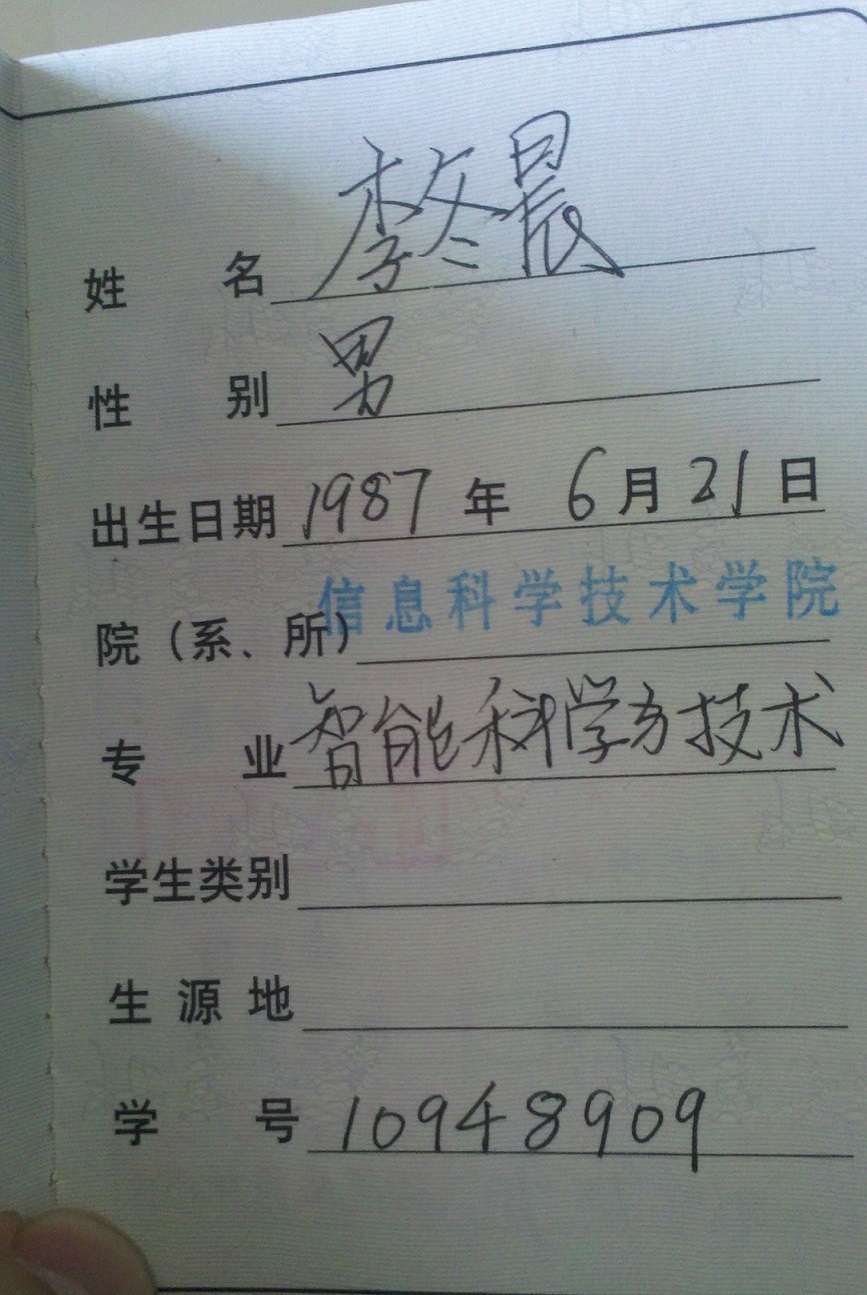 姓名 李冬晨
性别 男
出生日期 1987年 6月21日
院（系、所） 信息科学技术学院
专业 智能科学与技术
学生类别
生源地
学号 10948909